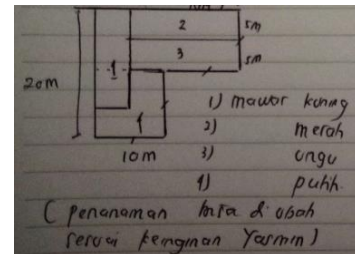 2 5m
3 5m
1
20m
1
1) mawar kuning
10m 2) merah
3) ungu
4) putih
( penanaman bisa di ubah
sesuai keinginan Yasmin)